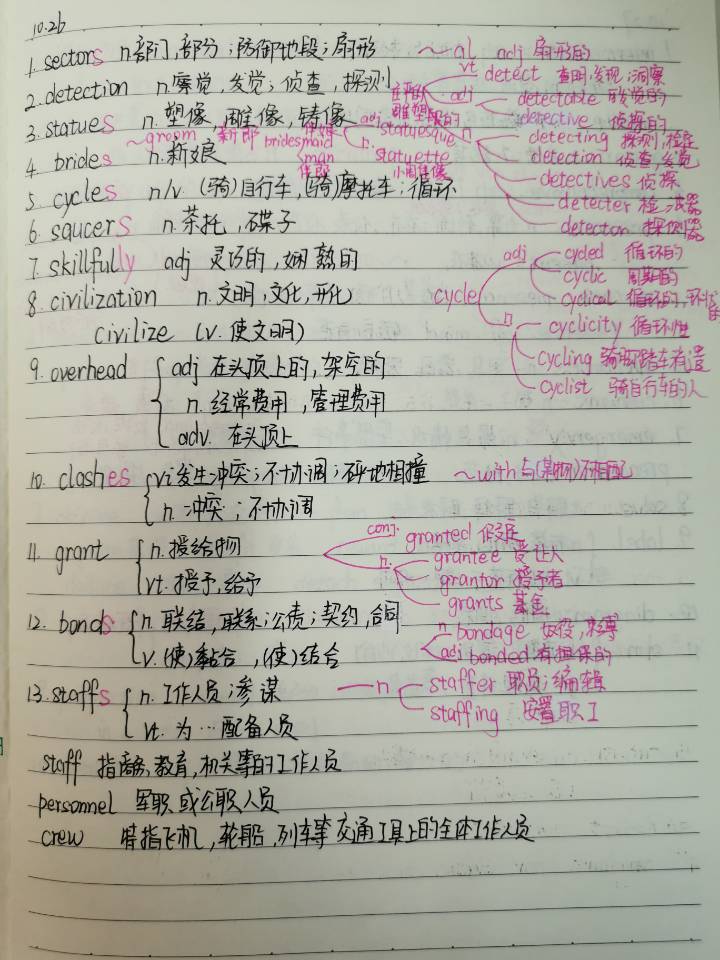 10.26
1. sectors n.部门,部分;防御地段;扇形 ~al adj 扇形的
vt detect 查明,发现;洞察
2. detection n.察觉,发觉;侦查,探测
adj detectable 可发觉的
detective 侦探的
3. statues n.塑像,雕像,铸像 adj. statuesque
n. statuette 小雕像
n detecting 探测,检定
detection 侦查,发觉
detectives 侦探
detecter 检波器
detecton 探测器
~groom 新郎 bridesmaid 伴娘
man 伴郎
4. brides n.新娘
5. cycles n/v. (骑)自行车,(骑)摩托车;循环
6. saucers n.茶托,碟子
7. skillfully adj 灵巧的,娴熟的
cycle adj cycled 循环的
cyclic 周期的
cyclical 循环的,环状
n cyclicity 循环性
cycling 骑脚踏车消遣
cyclist 骑自行车的人
8. civilization n.文明,文化,开化
civilize (v.使文明)
9. overhead adj 在头顶上的,架空的
n.经常费用,管理费用
adv. 在头顶上
10. clashes vi发生冲突;不协调;砰地相撞 ~with与(某物)不相配
n.冲突;不协调
11. grant n.授给物
vt.授予,给予
conj. granted 假定
n. grantee 受让人
grantor 授予者
grants 基金
12. bonds n.联结,联系;公债;契约,合同
v.(使)黏合,(使)结合
n bondage 奴役,束缚
adj bonded 有担保的
13. staffs n.工作人员;参谋
vt.为…配备人员
n staffer 职员;编辑
staffing 安置职工
staff 指商务,教育,机关等的工作人员
personnel 军职或公职人员
crew 特指飞机,轮船,列车等交通工具上的全体工作人员